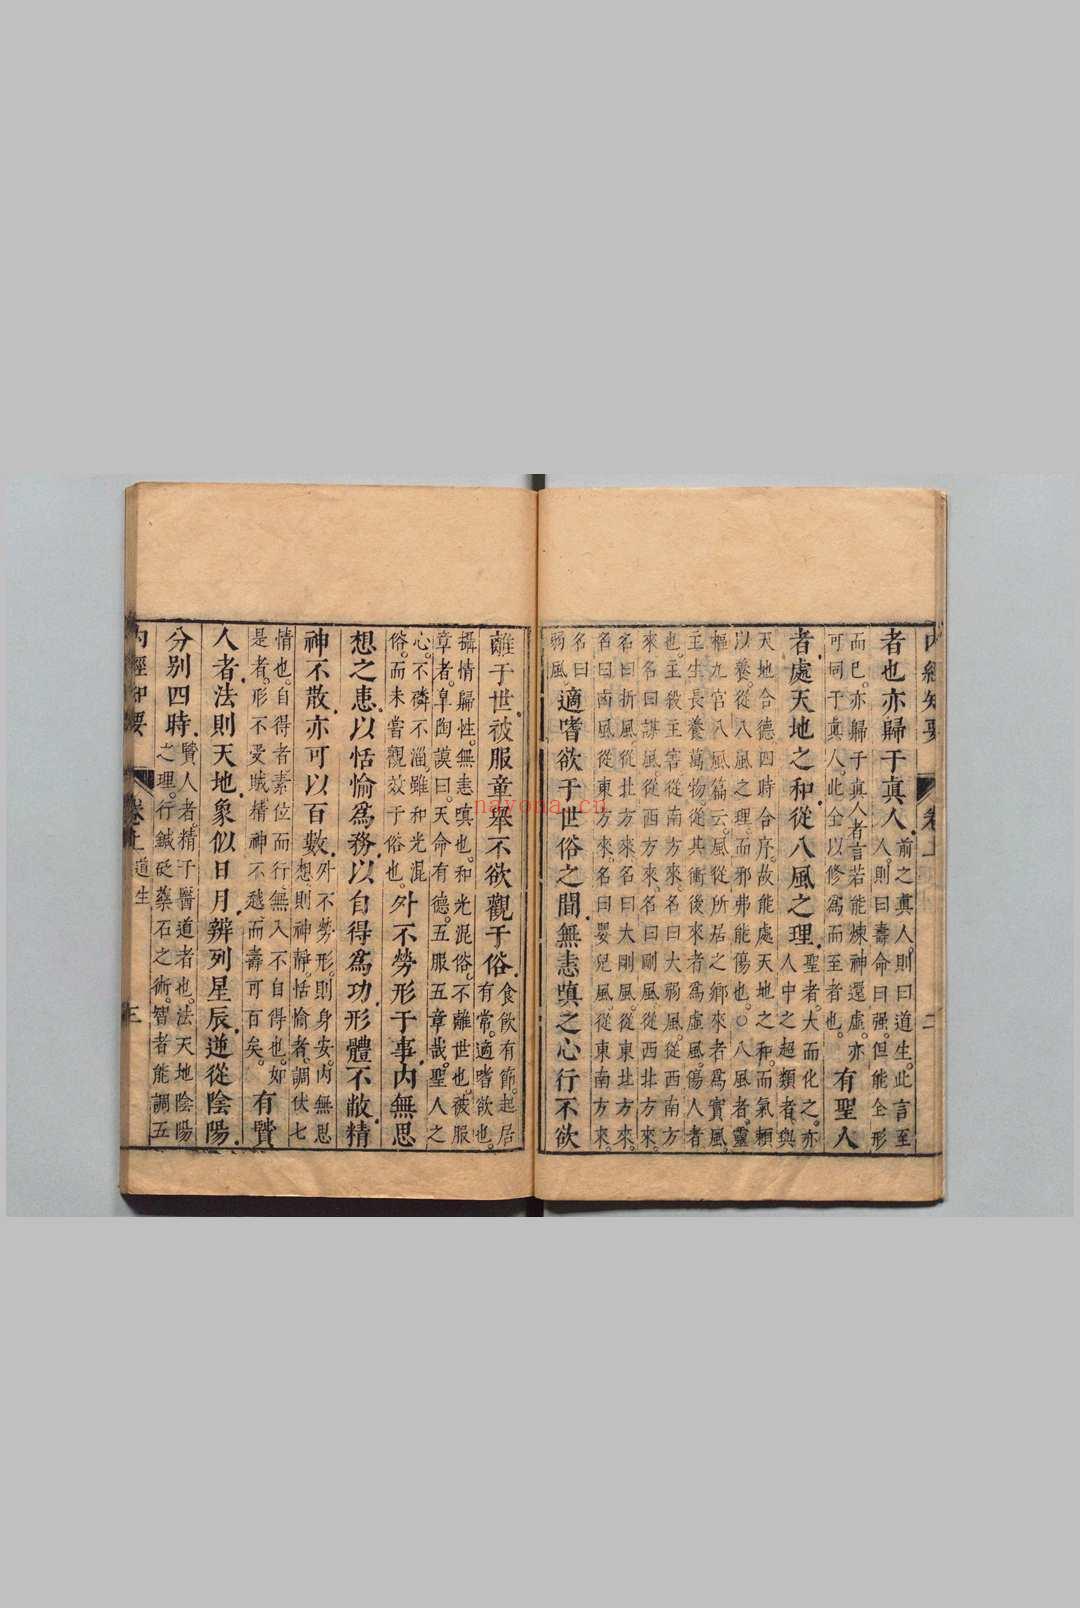 內經知要 卷上 二
者也亦歸于眞人。前之眞人。則曰道生。此言至
人。則曰壽命曰强。但能全形
而已。亦歸于眞人者。言若能煉神還虛。亦
可同于眞人。此全以修爲而至者也。有聖人
者。處天地之和。從八風之理。聖者。大而化之。亦
人中之超類者。與
天地合德。四時合序。故能處天地之和。而氣頼
以養。從八風之理。而邪弗能傷也。○八風者。靈
樞九宮八風篇云。風從所居之鄉來者爲實風。
主生長養萬物。從其衝後來者爲虛風。傷人者
也。主殺主害。從南方來。名曰大弱風。從西南方
來。名曰謀風。從西方來。名曰剛風。從西北方來。
名曰折風。從北方來。名曰大剛風。從東北方來。
名曰凶風。從東方來。名曰嬰兒風。從東南方來。
名曰
弱風。適嗜欲于世俗之間。無恚嗔之心。行不欲
離于世。被服章。舉不欲觀于俗。食飲有節。起居
有常。適嗜欲也。
攝情歸性。無恚嗔也。和光混俗。不離世也。被服
章者。皐陶謨曰。天命有德。五服五章哉。聖人之
心。不磷不淄。雖和光混
俗。而未嘗觀效于俗也。外不勞形于事。內無思
想之患。以恬愉爲務。以自得爲功。形體不敝。精
神不散。亦可以百數。外不勞形。則身安。內無思
想則神靜。恬愉者。調伏七
情也。自得者。素位而行。無入不自得也。如
是者。形不受賊。精神不越。而壽可百矣。有賢
人者。法則天地。象似日月。辨列星辰。逆從陰陽。
分别四時。賢人者。精于醫道者也。法天地陰陽
之理。行鍼砭藥石之術。智者能調五
內經知要 卷上 道生 三
nayona.cn